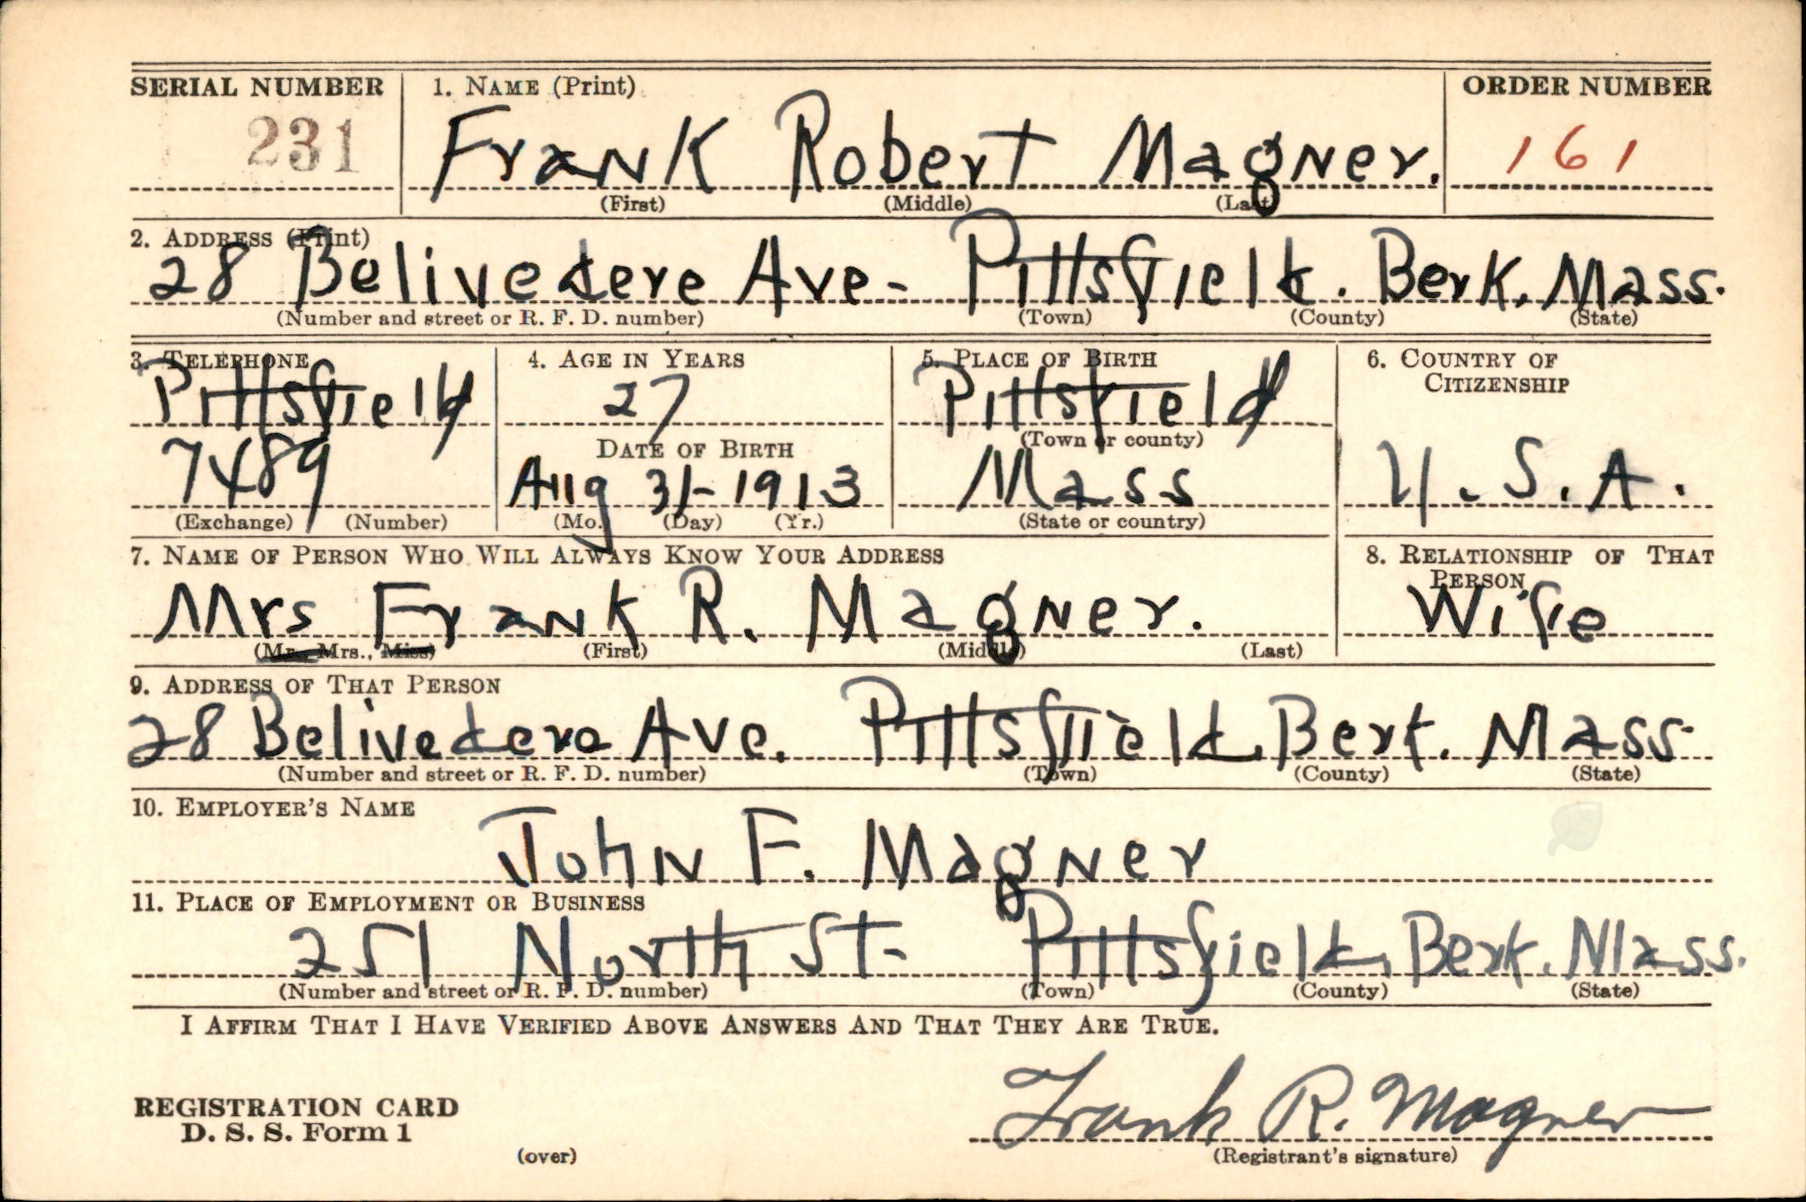 SERIAL NUMBER 1. NAME (Print) ORDER NUMBER
231 Frank Robert Magner. 161
(First) (Middle) (Last)
2. ADDRESS (Print)
28 Belivedere Ave- Pittsfield. Berk. Mass.
(Number and street or R. F. D. number) (Town) (County) (State)
3. TELEPHONE 4. AGE IN YEARS 5. PLACE OF BIRTH 6. COUNTRY OF
CITIZENSHIP
Pittsfield 27 Pittsfield
DATE OF BIRTH (Town or county)
7489 Aug 31-1913 Mass U.S.A.
(Exchange) (Number) (Mo.) (Day) (Yr.) (State or country)
7. NAME OF PERSON WHO WILL ALWAYS KNOW YOUR ADDRESS 8. RELATIONSHIP OF THAT
PERSON
Mrs Frank R. Magner. Wife
(Mr., Mrs., Miss) (First) (Middle) (Last)
9. ADDRESS OF THAT PERSON
28 Belivedere Ave. Pittsfield, Berk. Mass
(Number and street or R. F. D. number) (Town) (County) (State)
10. EMPLOYER'S NAME
John F. Magner
11. PLACE OF EMPLOYMENT OR BUSINESS
251 North St- Pittsfield, Berk. Mass.
(Number and street or R. F. D. number) (Town) (County) (State)
I AFFIRM THAT I HAVE VERIFIED ABOVE ANSWERS AND THAT THEY ARE TRUE.
REGISTRATION CARD Frank R. Magner
D. S. S. Form 1
(over) (Registrant's signature)